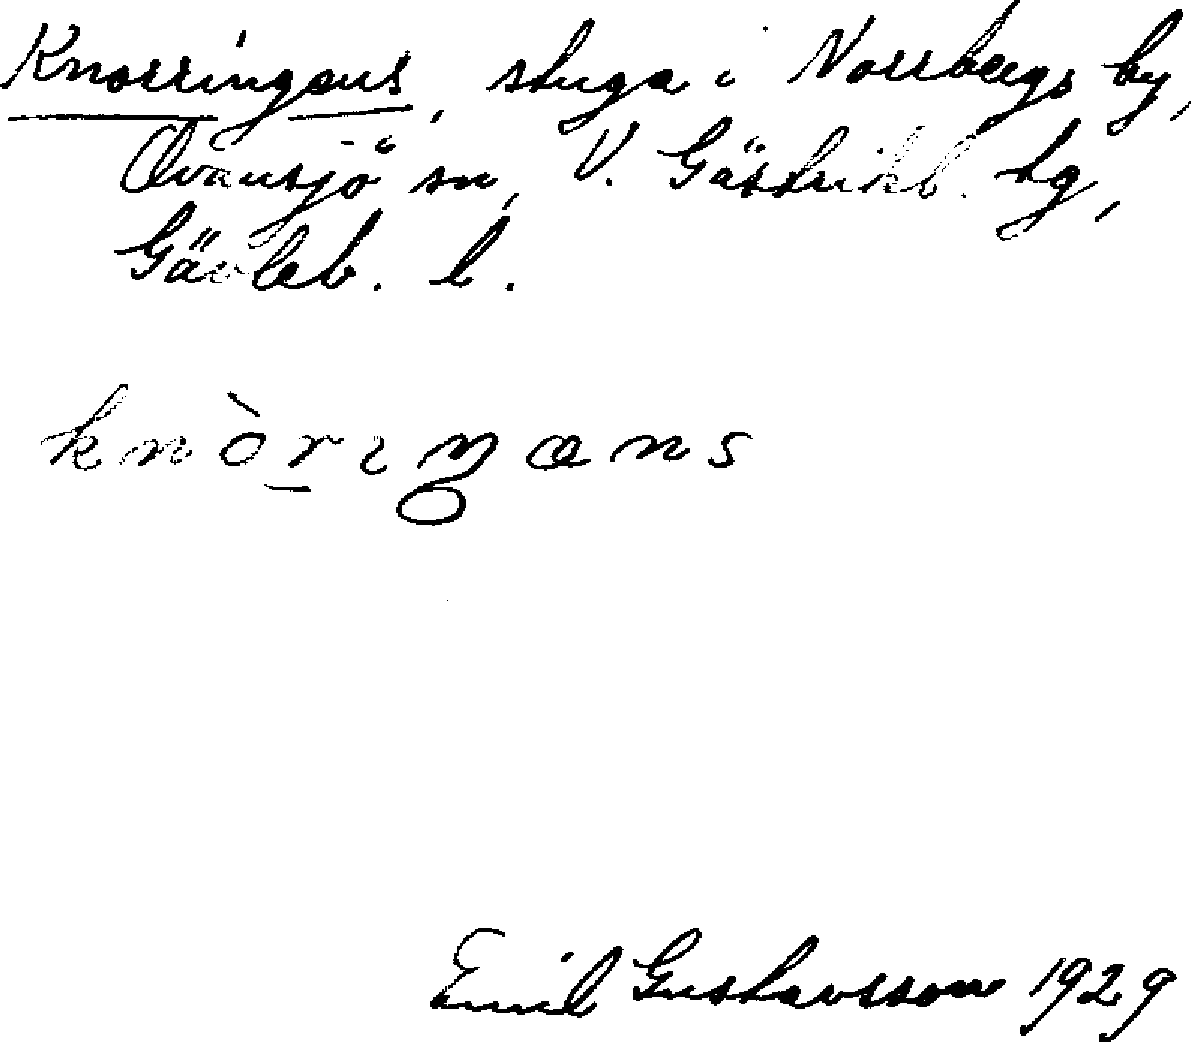 Knorringens, stuga i Norrbergs by,
Ovansjö sn, V. Gästrikl. tg,
Gävleb. l.
knòrıŋæns
Emil Gustavsson 1929